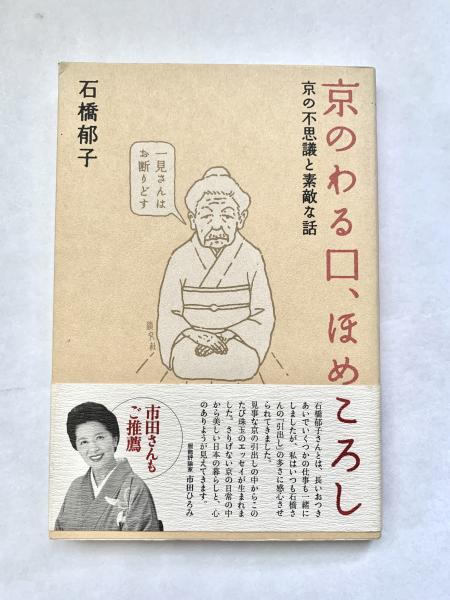 京のわる口、ほめころし
京の不思議と素敵な話
石橋郁子
一見さんは
お断りどす
淡交社
市田さんも
ご推薦
石橋郁子さんとは、長いおつき
あいでいくつかの仕事も一緒に
しましたが、私はいつも石橋さ
んの「引出し」の多さに感心させ
られてきました。
見事な京の引出しの中からこの
たび珠玉のエッセイが生まれま
した。さりげない京の日常の中
から美しい日本の暮らしと、心
のありようが見えてきます。
服飾評論家 市田ひろみ